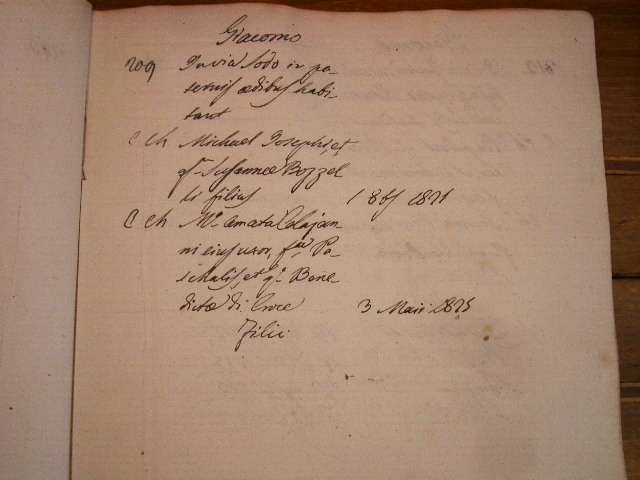 Giacomo
209 In via Sodo in pa-
ternis ædibus habi-
tant
C Ch Michael Josephi, et
q.m Susannæ Bozzel
li filius 1 8bris 1871
C Ch M.a Amata Colajan-
ni ejus uxor, f.a Pa-
schalis, et q.m Bene
dictæ di Croce 3 Maii 1875
Filii